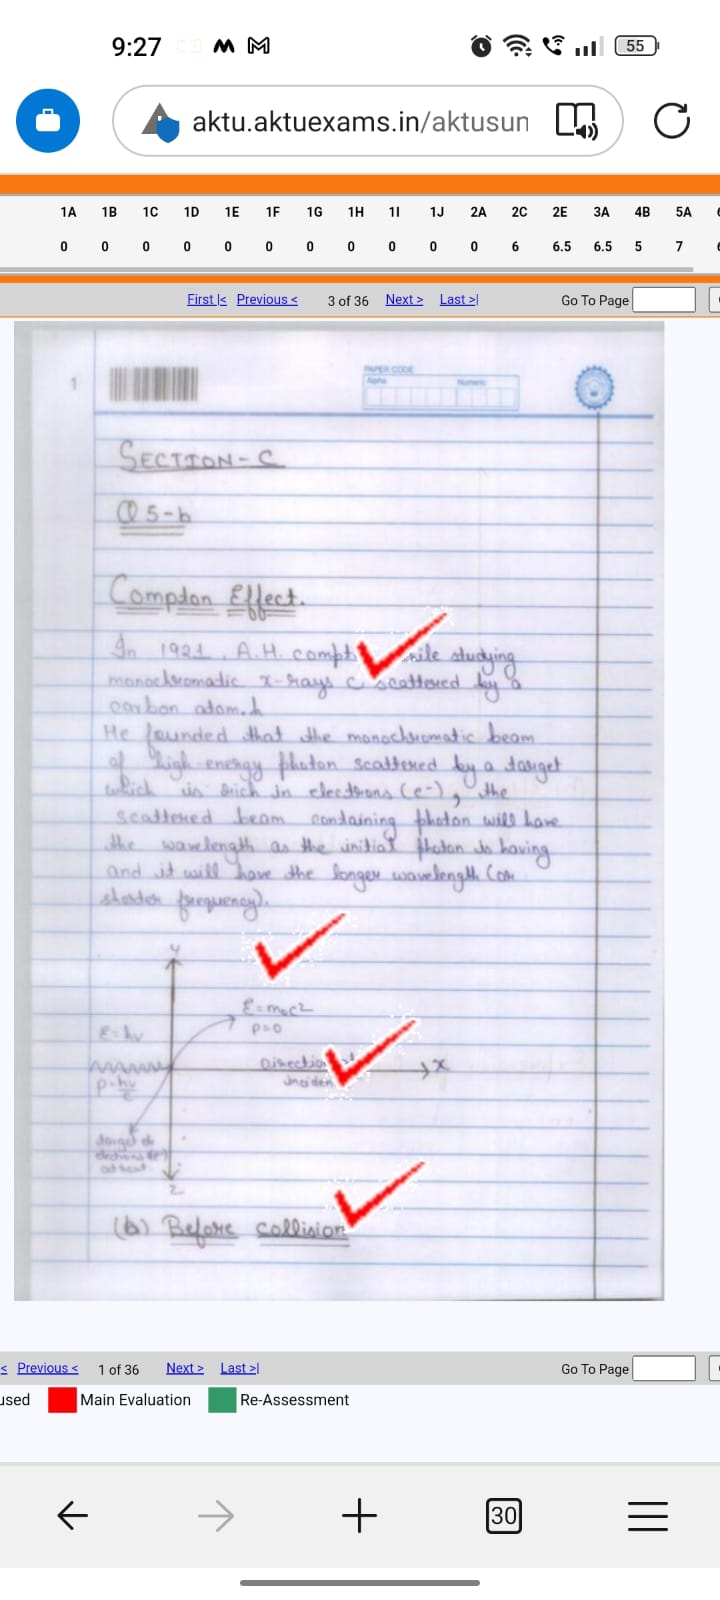 9:27
55
aktu.aktuexams.in/aktusun
1A 1B 1C 1D 1E 1F 1G 1H 1I 1J 2A 2C 2E 3A 4B 5A
0 0 0 0 0 0 0 0 0 0 0 6 6.5 6.5 5 7
First |< Previous < 3 of 36 Next > Last >| Go To Page
1
PAPER CODE
Alpha Numeric
SECTION-C
Q 5-b
Compton Effect.
In 1921, A.H. compt while studying
monochromatic x-rays scattered by a
carbon atom.
He founded that the monochromatic beam
of high-energy photon scattered by a target
which is rich in electrons (e-), the
scattered beam containing photon will have
the wavelength as the initial photon is having
and it will have the longer wavelength (or
shorter frequency).
y
E=m₀c2
p=0
E=hν
Direction
x
inciden
p=hν/c
target
at rest
z
(b) Before collision
< Previous < 1 of 36 Next > Last >| Go To Page
used Main Evaluation Re-Assessment
30